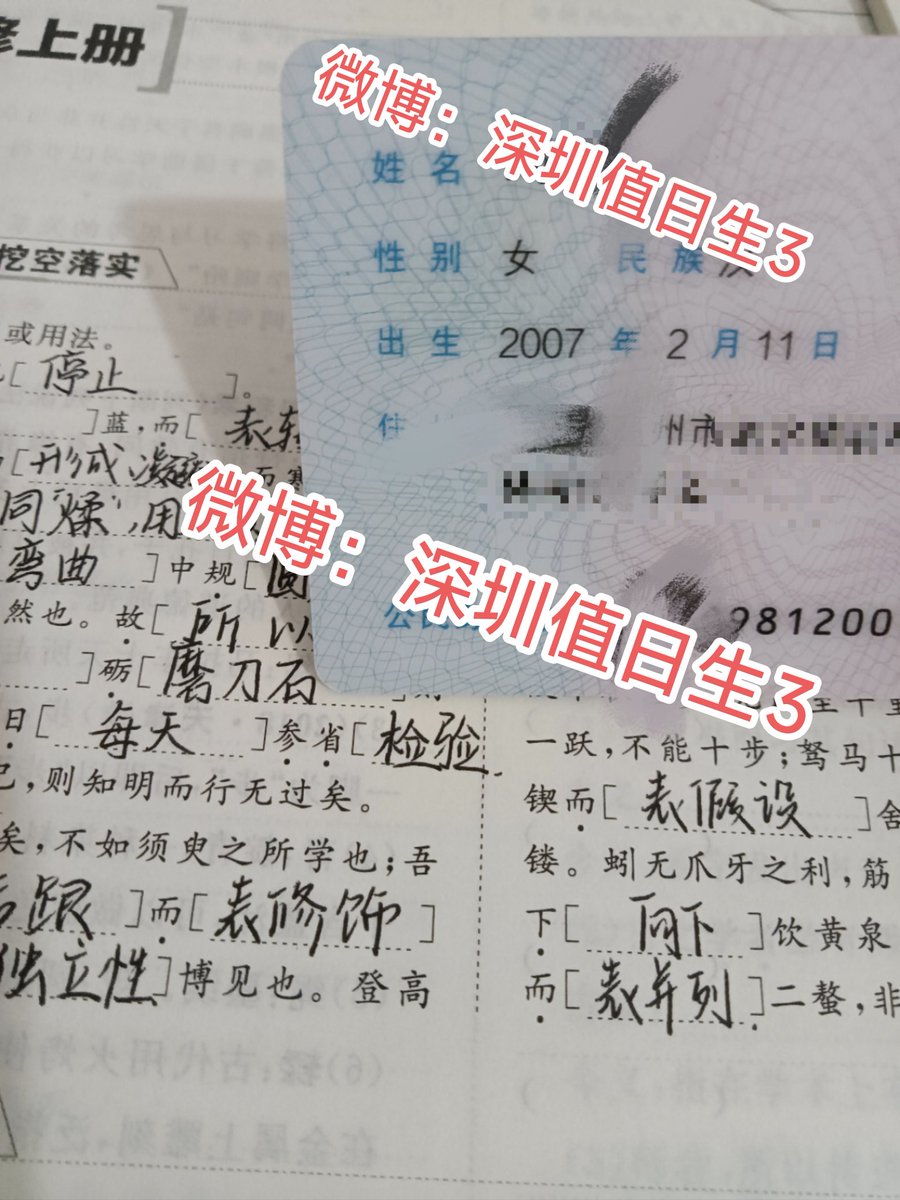 修上册
微博：深圳值日生3
姓名
性别 女 民族汉
出生 2007 年 2 月 11 日
州市
微博：深圳值日生3
981200
挖空落实
或用法。
[停止]。
]蓝，而[表转
[形成 凝
同“燥”，用
弯曲]中规[圆
然也。故[所以
]砺[磨刀石
日[每天]参省[检验
己，则知明而行无过矣。
矣，不如须臾之所学也；吾
后跟]而[表修饰]
独立性]博见也。登高
一跃，不能十步；驽马十
锲而[表假设]舍
镂。蚓无爪牙之利，筋
下[向下]饮黄泉
而[表并列]二螯，非